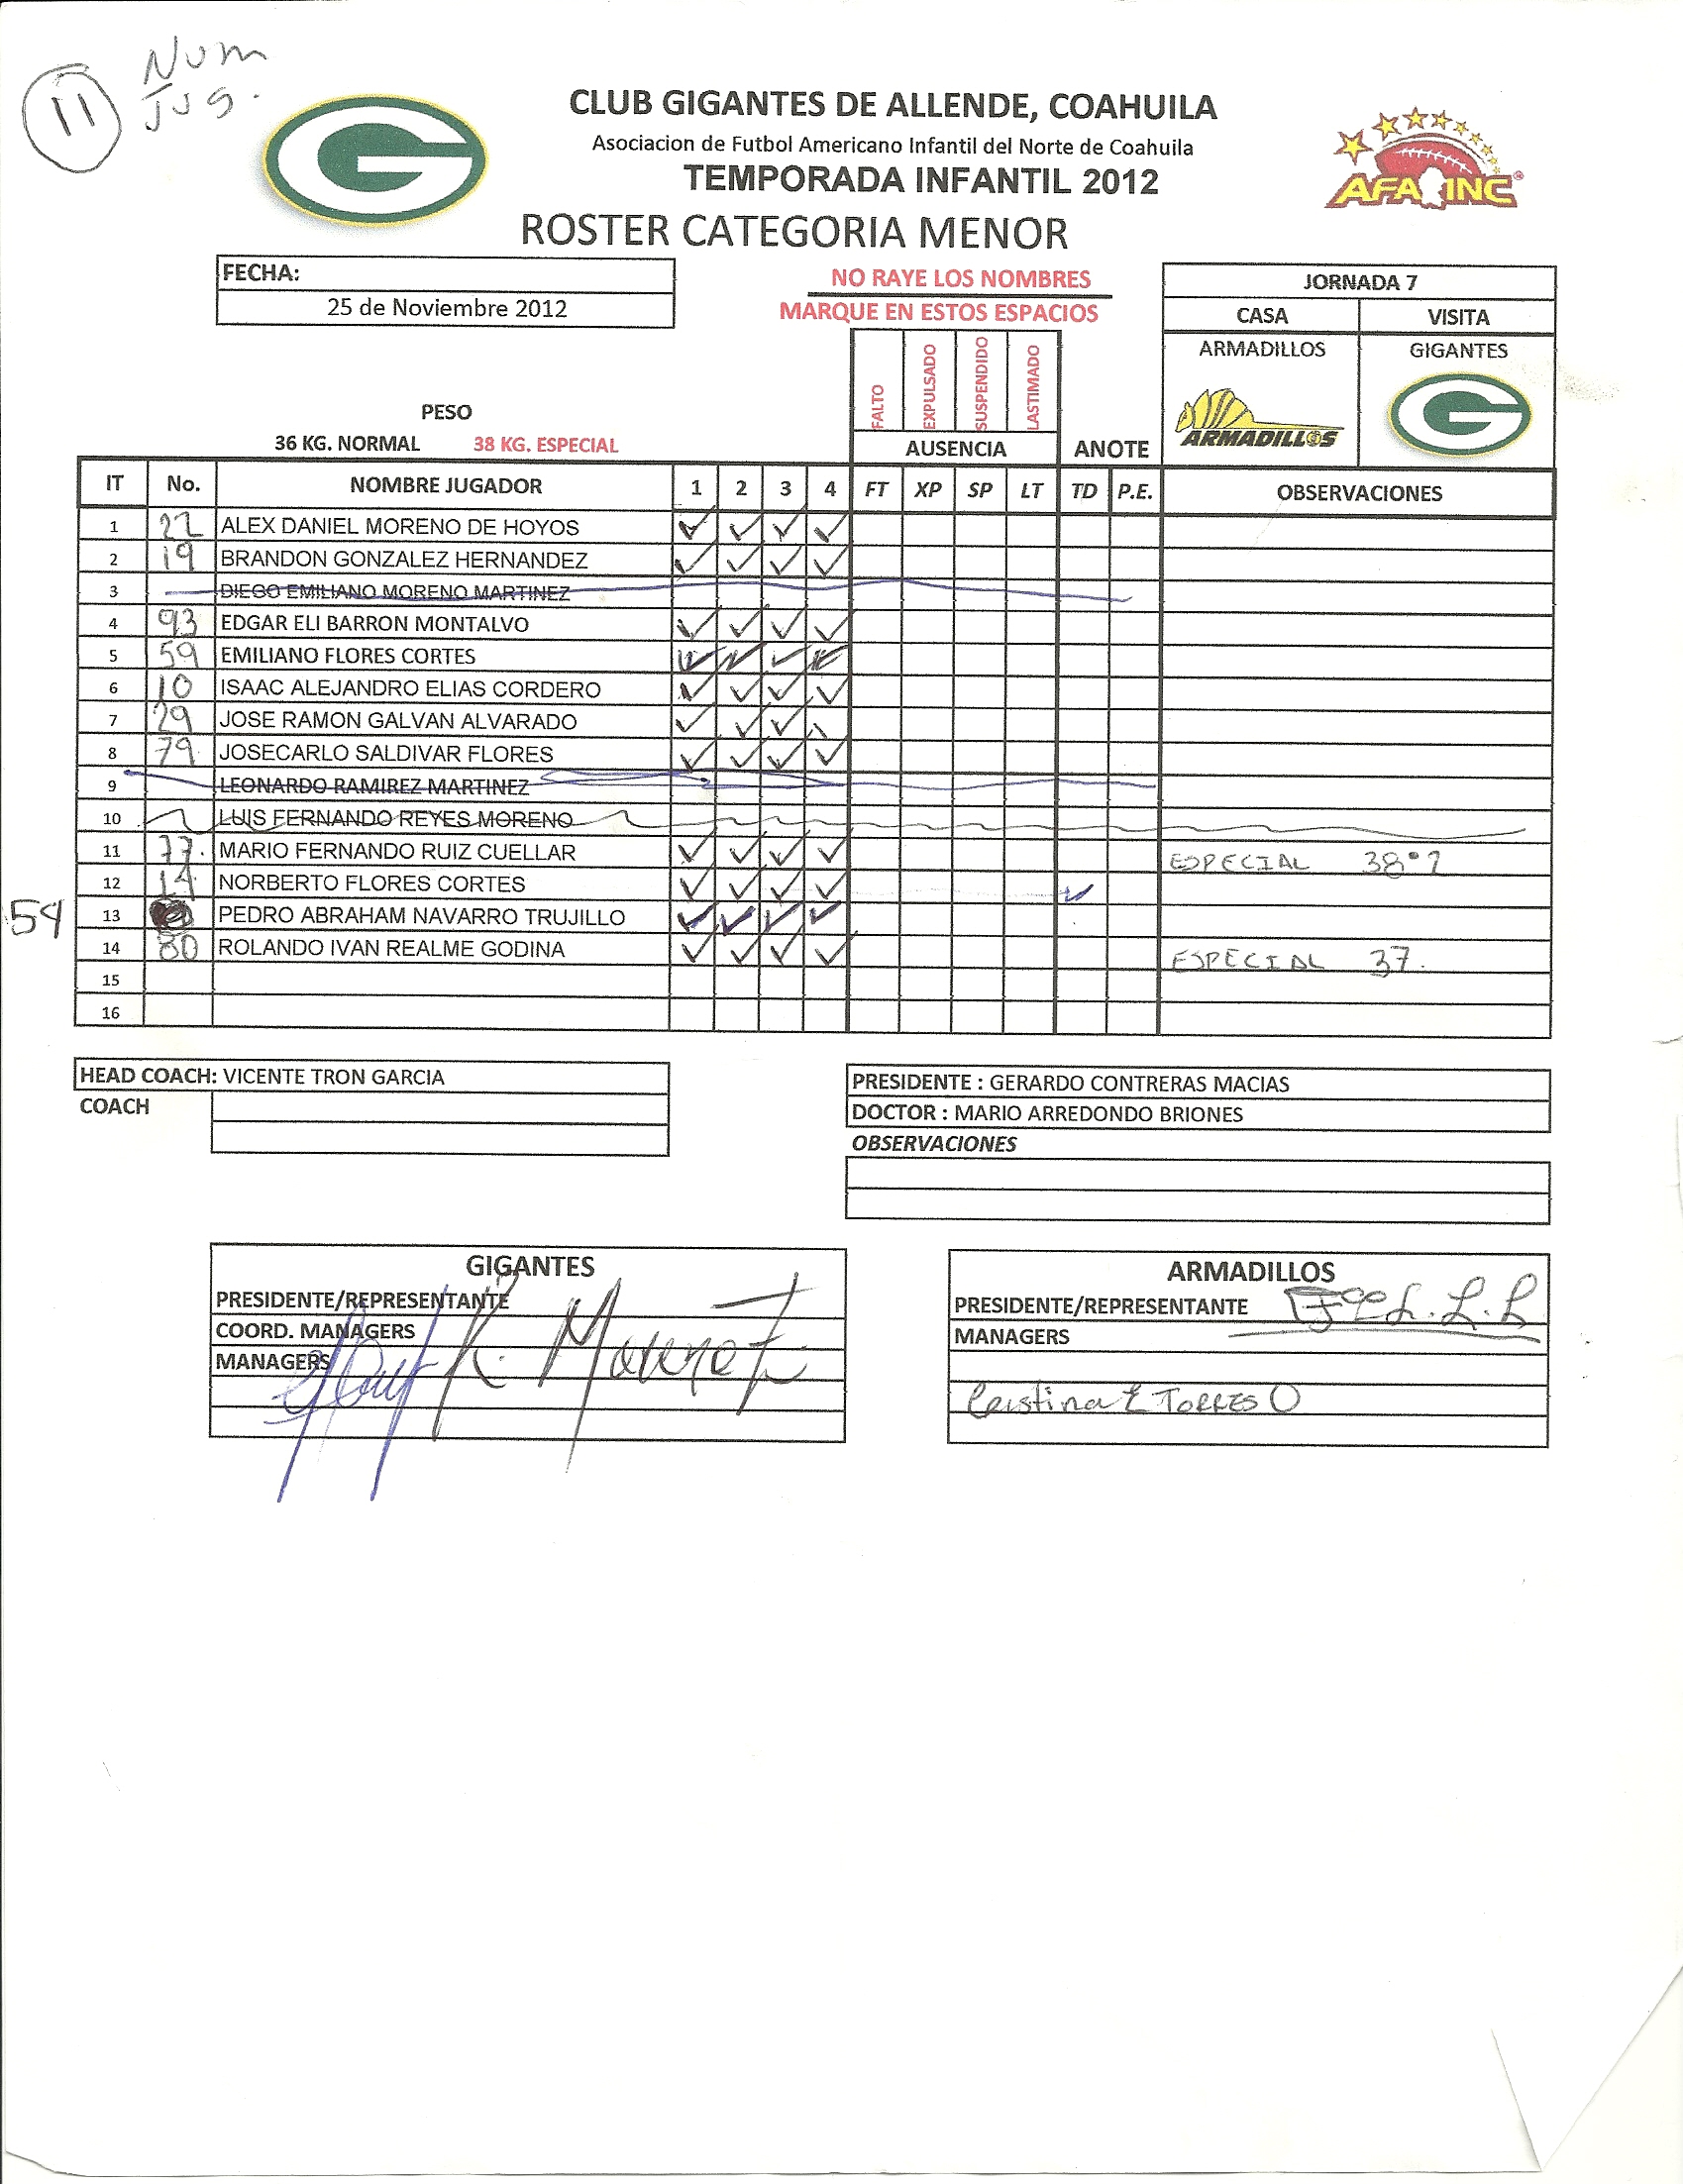 11 Num
Jug.
CLUB GIGANTES DE ALLENDE, COAHUILA
Asociacion de Futbol Americano Infantil del Norte de Coahuila
TEMPORADA INFANTIL 2012
AFA INC
ROSTER CATEGORIA MENOR
FECHA:
25 de Noviembre 2012
NO RAYE LOS NOMBRES
MARQUE EN ESTOS ESPACIOS
JORNADA 7
CASA VISITA
ARMADILLOS GIGANTES
ARMADILLOS
FALTO EXPULSADO SUSPENDIDO LASTIMADO
PESO
36 KG. NORMAL 38 KG. ESPECIAL
AUSENCIA ANOTE
IT No. NOMBRE JUGADOR 1 2 3 4 FT XP SP LT TD P.E. OBSERVACIONES
1 22 ALEX DANIEL MORENO DE HOYOS ✓ ✓ ✓ ✓
2 19 BRANDON GONZALEZ HERNANDEZ ✓ ✓ ✓ ✓
3 DIEGO EMILIANO MORENO MARTINEZ
4 93 EDGAR ELI BARRON MONTALVO ✓ ✓ ✓ ✓
5 59 EMILIANO FLORES CORTES ✓ ✓ ✓ ✓
6 10 ISAAC ALEJANDRO ELIAS CORDERO ✓ ✓ ✓ ✓
7 29 JOSE RAMON GALVAN ALVARADO ✓ ✓ ✓ ✓
8 79 JOSECARLO SALDIVAR FLORES ✓ ✓ ✓ ✓
9 LEONARDO RAMIREZ MARTINEZ
10 LUIS FERNANDO REYES MORENO
11 77. MARIO FERNANDO RUIZ CUELLAR ✓ ✓ ✓ ✓ ESPECIAL
12 14 NORBERTO FLORES CORTES ✓ ✓ ✓ ✓ ✓
54 13 PEDRO ABRAHAM NAVARRO TRUJILLO ✓ ✓ ✓ ✓
14 80 ROLANDO IVAN REALME GODINA ✓ ✓ ✓ ✓ ESPECIAL 37.
15
16
HEAD COACH: VICENTE TRON GARCIA
COACH
PRESIDENTE : GERARDO CONTRERAS MACIAS
DOCTOR : MARIO ARREDONDO BRIONES
OBSERVACIONES
GIGANTES
PRESIDENTE/REPRESENTANTE
COORD. MANAGERS
MANAGERS
ARMADILLOS
PRESIDENTE/REPRESENTANTE
MANAGERS
Cristina E TORRES O